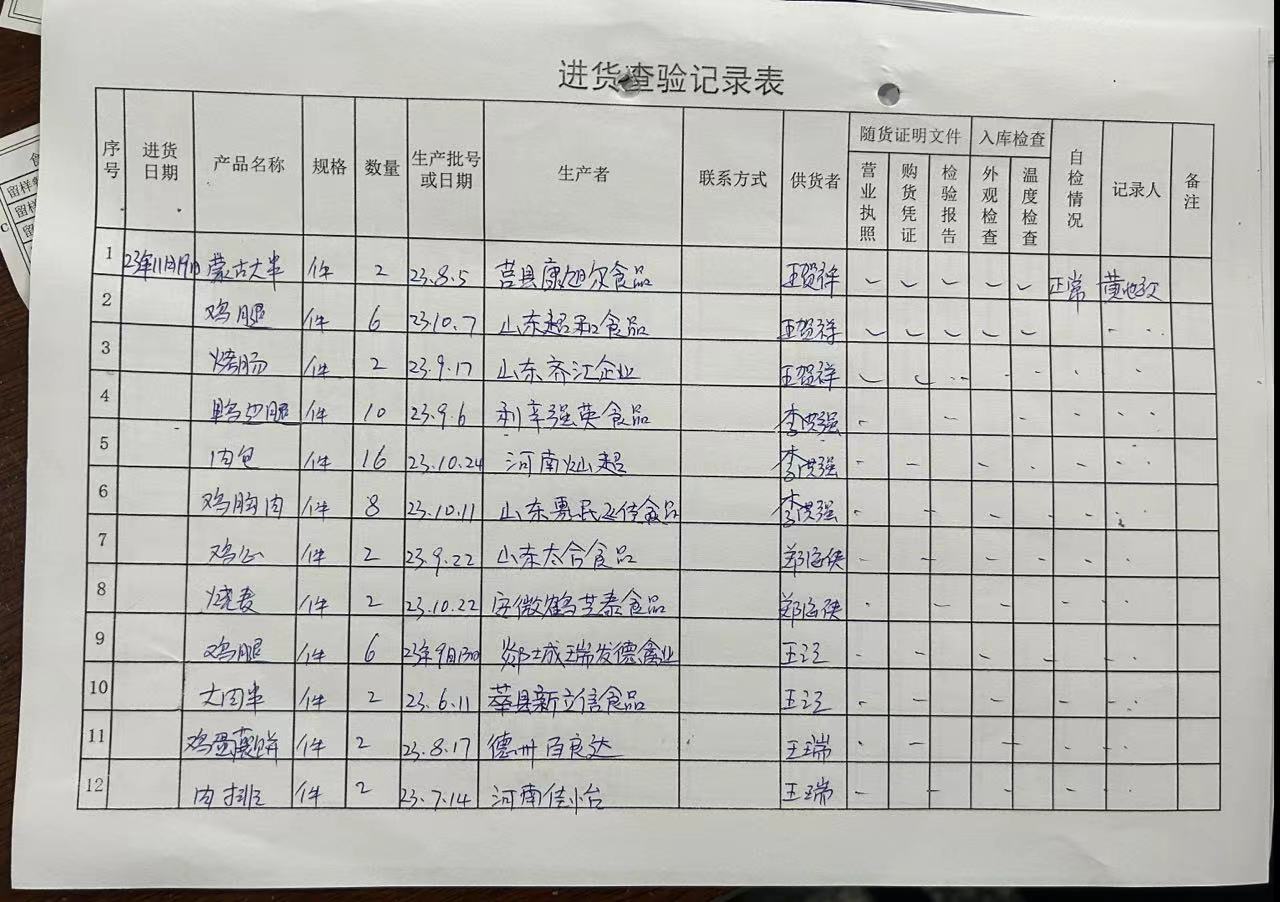 进货查验记录表
序号 进货日期 产品名称 规格 数量 生产批号或日期 生产者 联系方式 供货者 随货证明文件 入库检查 自检情况 记录人 备注
营业执照 购货凭证 检验报告 外观检查 温度检查
1 23年11月19日 蒙古大串 件 2 23.8.5 莒县康旭尔食品 王贺祥 ✓ ✓ ✓ ✓ ✓ 正常 黄
2 鸡腿 件 6 23.10.7 山东超和食品 王贺祥 ✓ ✓ ✓ ✓ ✓
3 烤肠 件 2 23.9.17 山东齐汇企业 王贺祥 ✓ ✓
4 鸭边腿 件 10 23.9.6 利辛强英食品 李洪强
5 肉包 件 16 23.10.24 河南灿超 李洪强
6 鸡胸肉 件 8 23.10.11 山东惠民 食品 李洪强
7 鸡 件 2 23.9.22 山东太合食品 郑
8 烧麦 件 2 23.10.22 安徽鹤芝泰食品 郑
9 鸡腿 件 6 23年9月13日 郯城瑞发德禽业 王
10 大肉串 件 2 23.6.11 莘县新立信食品 王
11 鸡蛋蒸饼 件 2 23.8.17 德州百良达 王瑞
12 肉排 件 2 23.7.14 河南佳怡 王瑞
留样
留样